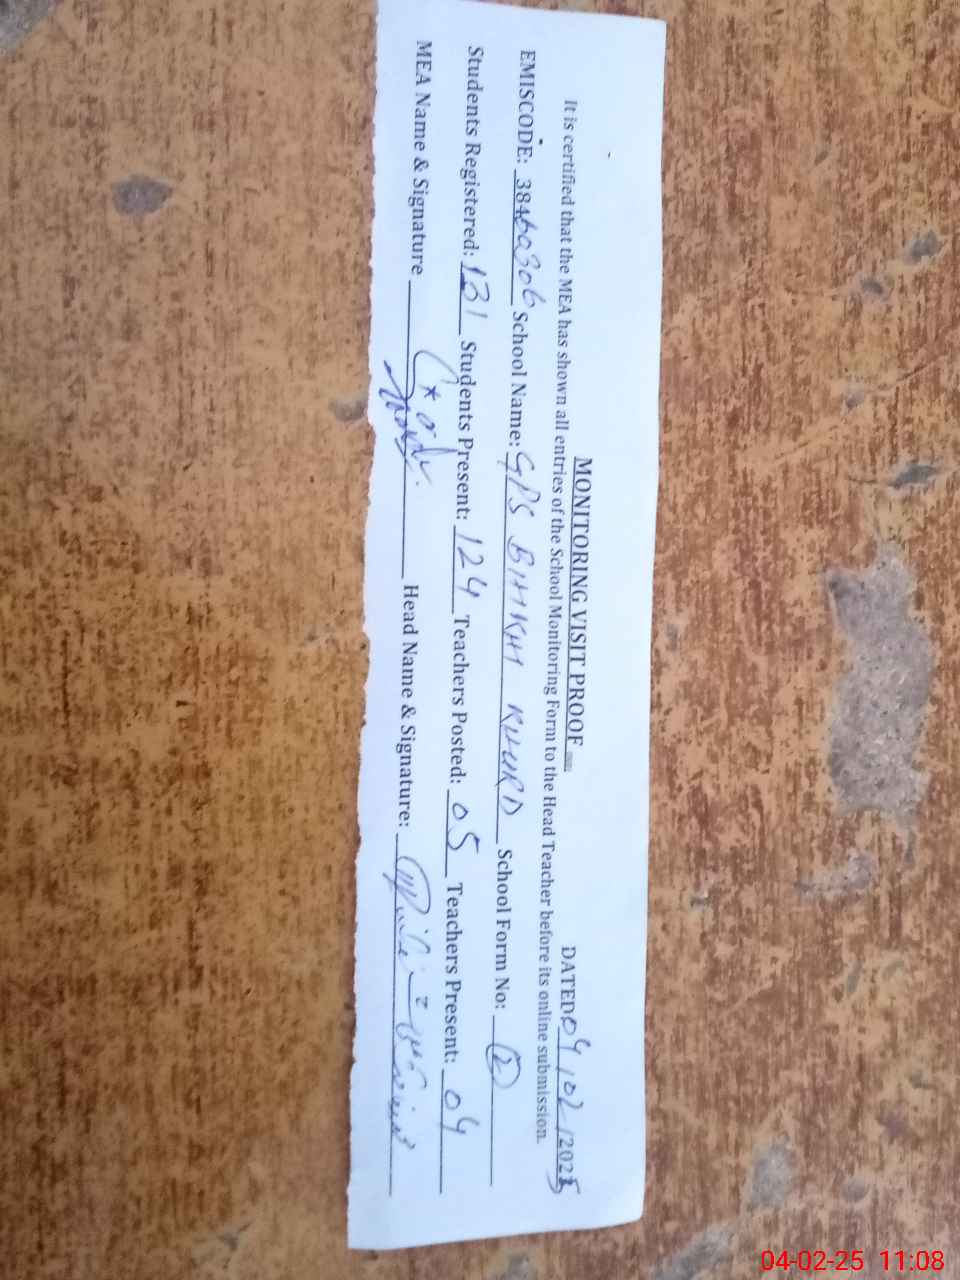 MONITORING VISIT PROOF
DATED 04/02/2025
It is certified that the MEA has shown all entries of the School Monitoring Form to the Head Teacher before its online submission.
EMISCODE: 38460306 School Name: GPS BHIKHI KHURD School Form No: (2)
Students Registered: 131 Students Present: 124 Teachers Posted: 05 Teachers Present: 04
MEA Name & Signature Head Name & Signature:
04-02-25 11:08